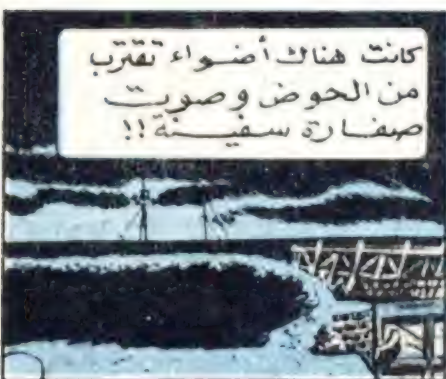 كانت هناك أضواء تقترب
من الحوض وصوت
صفارة سفينة !!